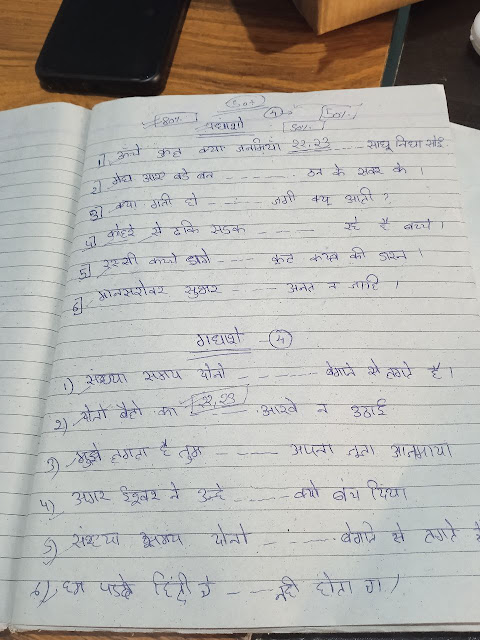 80% 50%
पद्यांशो 50%
1) ऊंचे कुल क्या जनमियां 22,23 ---- साधू निंधा सोई
2) मेघ आए बड़े बन ---- ठन के सवर के।
3) क्या गाती हो ---- जगी क्यू आती?
4) कोहरे से ढकि सडक ---- रहे है बच्चे।
5) रस्सी कच्चे धागे ---- कुट
6) मानसरोवर सुभर ---- अनत न जाहि।
गद्यांशो 4
1) संध्या समय दोनो ---- बेगाने से लगते है।
2) दोनों बैलो का 22,23 आखे न उठाई
3) मुझे लगता है तुम ---- अपना जूता आजमाया
4) अगर ईश्वर ने उन्हे ---- क्यो बंध दिया
5) संध्या समय दोनो ---- बेगाने से लगते है
6) हम पडले हिंदी ---- नही होता था।